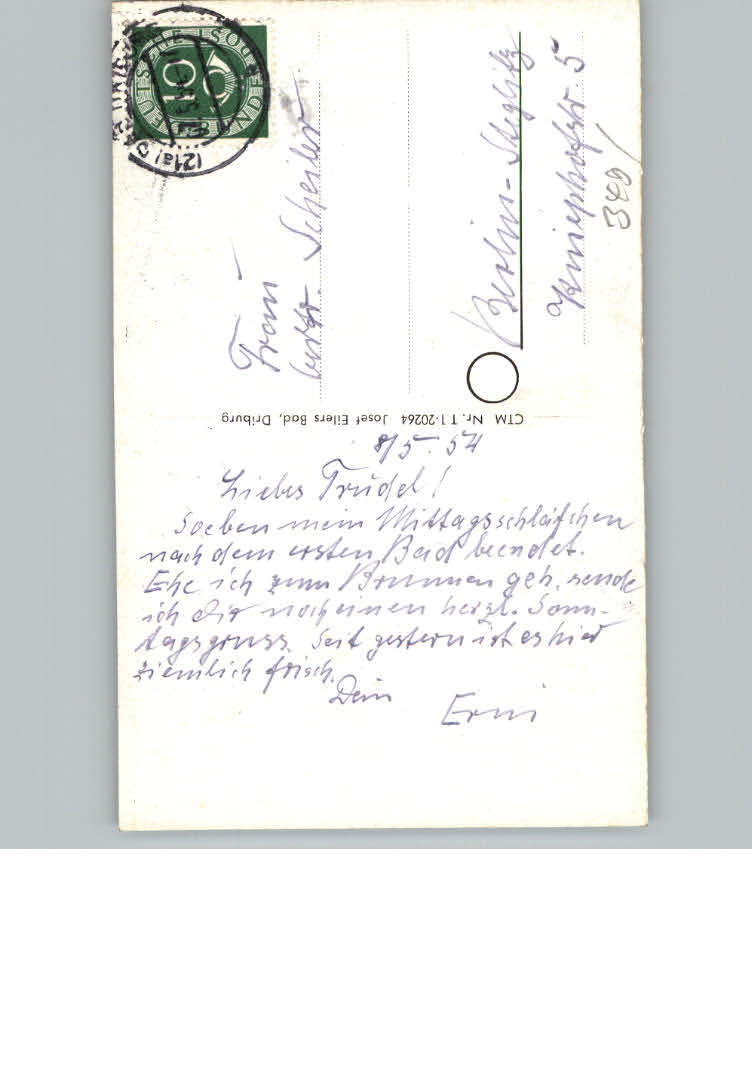 8/5. 54
Liebes Trudel!
Soeben mein Mittagsschläfchen
nach dem ersten Bad beendet.
Ehe ich zum Brunnen geh, sende
ich dir noch einen herzl. Sonn-
tagsgruss. Seit gestern ist es hier
ziemlich frisch.
Dein
Erni
CTM Nr. T 1-20264 Josef Eilers Bad, Driburg
Frau
Scheiler
Berlin-Steglitz
Kniephofstr 5
349
DEUTSCHE BUNDESPOST
10
(21a) BAD DRIBURG